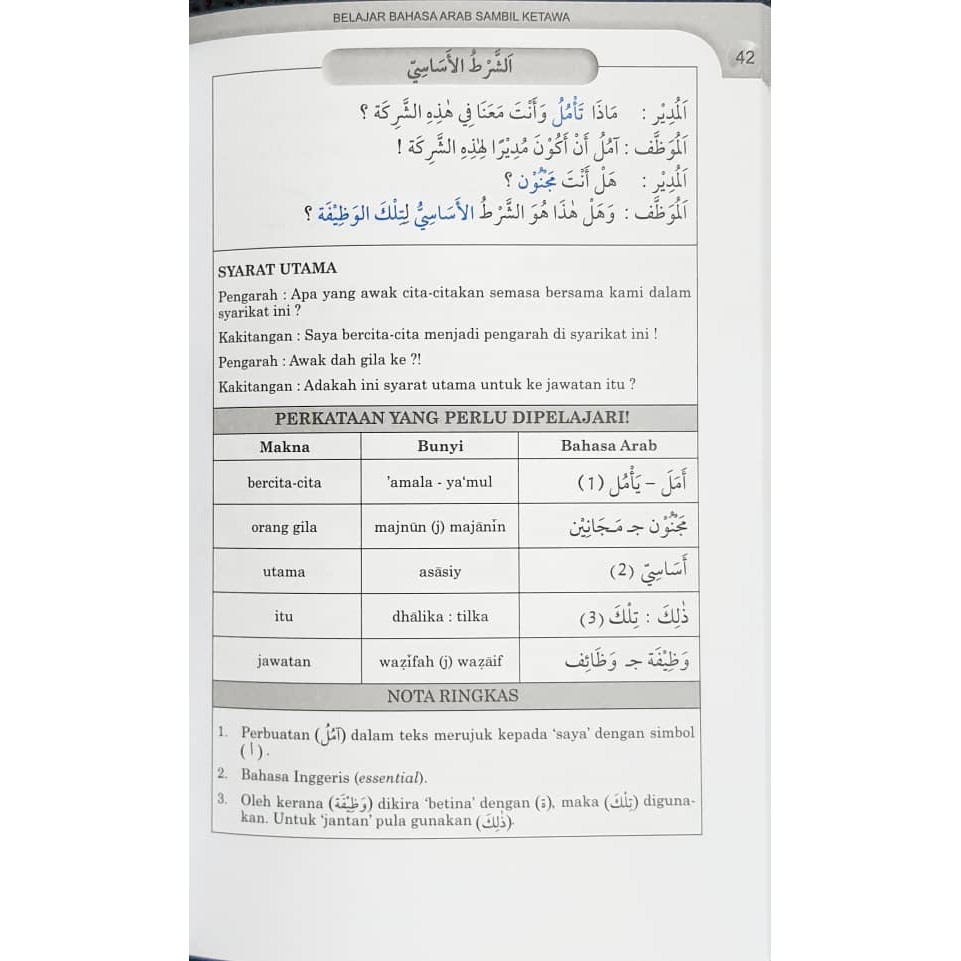 BELAJAR BAHASA ARAB SAMBIL KETAWA
42
اَلشَّرْطُ الأَسَاسِيّ
اَلْمُدِيْر : مَاذَا تَأْمُلُ وَأَنْتَ مَعَنَا فِي هٰذِهِ الشَّرِكَة ؟
اَلْمُوَظَّف : آمُلُ أَنْ أَكُوْنَ مُدِيْرًا لِهٰذِهِ الشَّرِكَة !
اَلْمُدِيْر : هَلْ أَنْتَ مَجْنُوْن ؟
اَلْمُوَظَّف : وَهَلْ هٰذَا هُوَ الشَّرْطُ الأَسَاسِيُّ لِتِلْكَ الوَظِيْفَة ؟
SYARAT UTAMA
Pengarah : Apa yang awak cita-citakan semasa bersama kami dalam
syarikat ini ?
Kakitangan : Saya bercita-cita menjadi pengarah di syarikat ini !
Pengarah : Awak dah gila ke ?!
Kakitangan : Adakah ini syarat utama untuk ke jawatan itu ?
PERKATAAN YANG PERLU DIPELAJARI!
Makna Bunyi Bahasa Arab
bercita-cita 'amala - ya'mul أَمَلَ – يَأْمُل (1)
orang gila majnūn (j) majānīn مَجْنُوْن جـ مَجَانِيْن
utama asāsiy أَسَاسِيّ (2)
itu dhālika : tilka ذٰلِكَ : تِلْكَ (3)
jawatan waẓīfah (j) waẓāif وَظِيْفَة جـ وَظَائِف
NOTA RINGKAS
1. Perbuatan (آمُلُ) dalam teks merujuk kepada 'saya' dengan simbol
( ا ).
2. Bahasa Inggeris (essential).
3. Oleh kerana (وَظِيْفَة) dikira 'betina' dengan (ة), maka (تِلْكَ) diguna-
kan. Untuk 'jantan' pula gunakan (ذٰلِكَ).